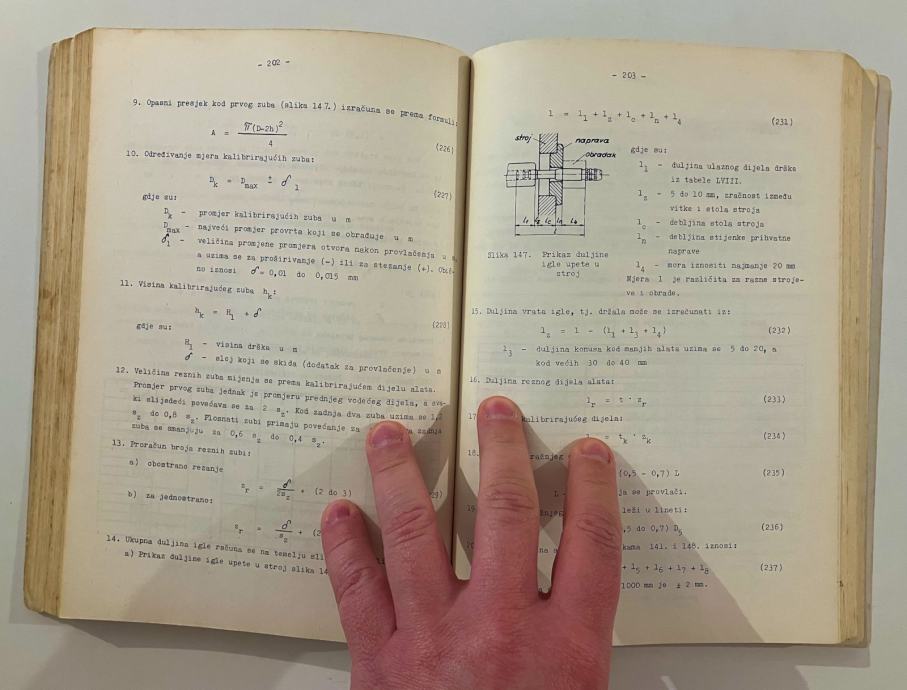 - 202 -
9. Opasni presjek kod prvog zuba (slika 147.) izračuna se prema formuli:
A = π(D-2h)² / 4
(226)
10. Određivanje mjera kalibrirajućih zuba:
D_k = D_max ± δ_1
(227)
gdje su:
D_k - promjer kalibrirajućih zuba u m
D_max - najveći promjer provrta koji se obrađuje u m
δ_1 - veličina promjene promjera otvora nakon provlačenja u
a uzima se za proširivanje (-) ili za stezanje (+).
no iznosi δ = 0,01 do 0,015 mm
11. Visina kalibrirajućeg zuba h_k:
h_k = H_1 + δ
(228)
gdje su:
H_1 - visina drška u m
δ - sloj koji se skida (dodatak za provlačenje) u m
12. Veličina reznih zuba mijenja se prema kalibrirajućem dijelu alata.
Promjer prvog zuba jednak je promjeru prednjeg vodećeg dijela, a sva-
ki slijedeći povećava se za 2 s_z. Kod zadnja dva zuba uzima se 1,2
s_z do 0,8 s_z. Plosnati zubi primaju povećanje za zadnja
zuba se smanjuju za 0,6 s_z do 0,4 s_z.
13. Proračun broja reznih zubi:
a) obostrano rezanje
z_r = δ / 2s_z + (2 do 3)
b) za jednostrano:
z_r = δ / s_z + (2
14. Ukupna duljina igle računa se na temelju
a) Prikaz duljine igle upete u stroj slika
- 203 -
l = l_1 + l_z + l_c + l_n + l_4
(231)
stroj
naprava
obradak
l_1 l_z l_c l_n l_4
l
Slika 147. Prikaz duljine
igle upete u
stroj
gdje su:
l_1 - duljina ulaznog dijela drška
iz tabele LVIII.
l_z - 5 do 10 mm, zračnost između
vitke i stola stroja
l_c - debljina stola stroja
l_n - debljina stijenke prihvatne
naprave
l_4 - mora iznositi najmanje 20 mm
Mjera l je različita za razne stroje-
ve i obrade.
15. Duljina vrata igle, tj. držala može se izračunati iz:
l_z = l - (l_1 + l_3 + l_4)
(232)
l_3 - duljina konusa kod manjih alata uzima se 5 do 20, a
kod većih 30 do 40 mm
16. Duljina reznog dijela alata:
l_r = t · z_r
(233)
kalibrirajućeg dijela:
= t_k · z_k
(234)
18.
(0,5 - 0,7) L
(235)
L - se provlači.
19. leži u lineti:
,5 do 0,7) D_5
(236)
141. i 148. iznosi:
+ l_5 + l_6 + l_7 + l_8
(237)
1000 mm je ± 2 mm.